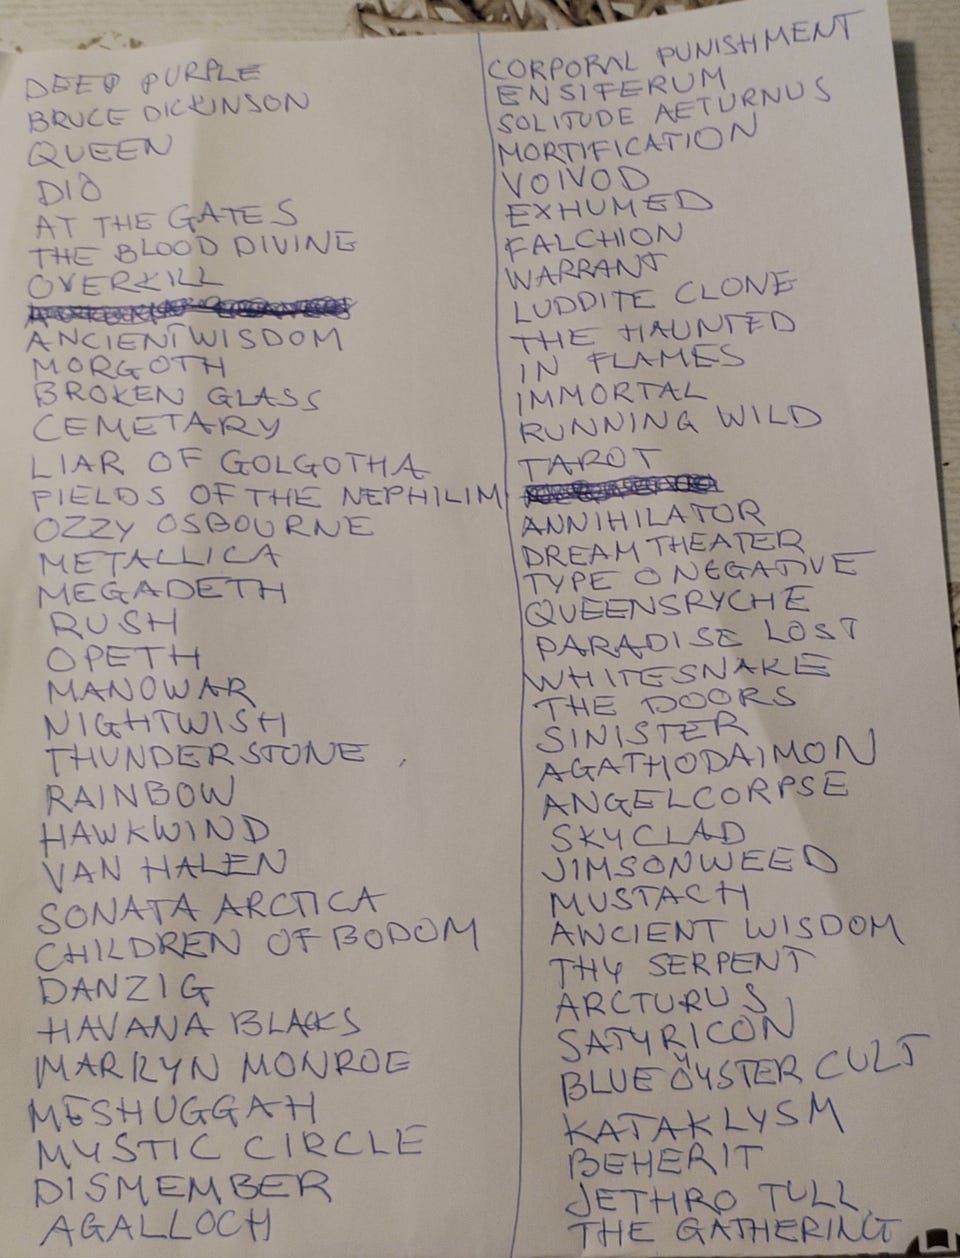 DEEP PURPLE
BRUCE DICKINSON
QUEEN
DIO
AT THE GATES
THE BLOOD DIVINE
OVERKILL
ANCIENT WISDOM
MORGOTH
BROKEN GLASS
CEMETARY
LIAR OF GOLGOTHA
FIELDS OF THE NEPHILIM
OZZY OSBOURNE
METALLICA
MEGADETH
RUSH
OPETH
MANOWAR
NIGHTWISH
THUNDERSTONE
RAINBOW
HAWKWIND
VAN HALEN
SONATA ARCTICA
CHILDREN OF BODOM
DANZIG
HAVANA BLACKS
MARILYN MONROE
MESHUGGAH
MYSTIC CIRCLE
DISMEMBER
AGALLOCH
CORPORAL PUNISHMENT
ENSIFERUM
SOLITUDE AETURNUS
MORTIFICATION
VOIVOD
EXHUMED
FALCHION
WARRANT
LUDDITE CLONE
THE HAUNTED
IN FLAMES
IMMORTAL
RUNNING WILD
TAROT
ANNIHILATOR
DREAM THEATER
TYPE O NEGATIVE
QUEENSRYCHE
PARADISE LOST
WHITESNAKE
THE DOORS
SINISTER
AGATHODAIMON
ANGELCORPSE
SKYCLAD
JIMSONWEED
MUSTACH
ANCIENT WISDOM
THY SERPENT
ARCTURUS
SATYRICON
BLUE ÖYSTER CULT
KATAKLYSM
BEHERIT
JETHRO TULL
THE GATHERING